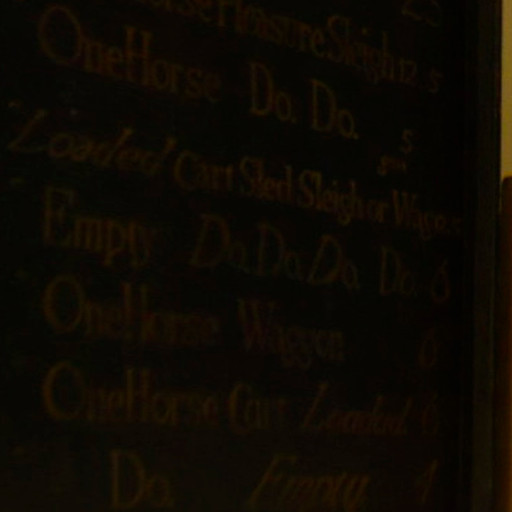 Horse Pleasure Sleigh 12 5
One Horse Do. Do. 5
Loaded Cart Sled Sleigh or Waggon
Empty Do. Do. Do. Do. 6
One Horse Waggon 6
One Horse Cart Loaded 6
Do. Empty 4